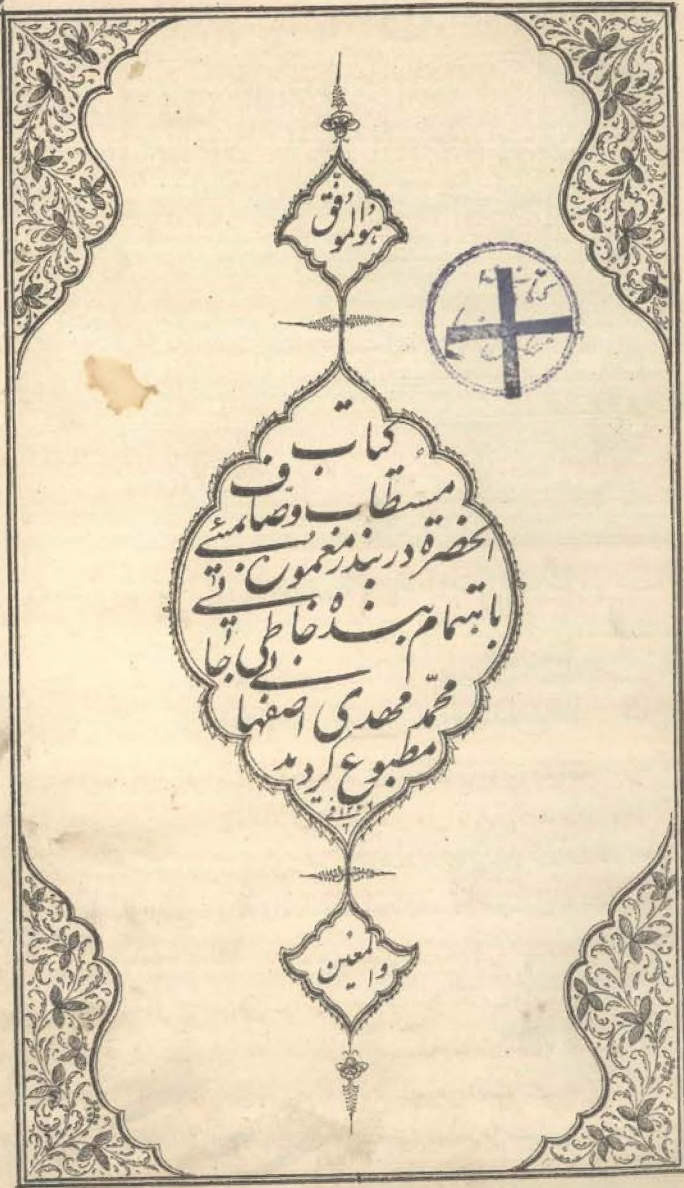 هو الموفّق
کتاب
مستطاب وصّاف
الحضرة در بندر معمورۀ بمبئی
باهتمام بنده خاطی جانی
محمّد مهدی اصفهانی
مطبوع گردید
والمعین